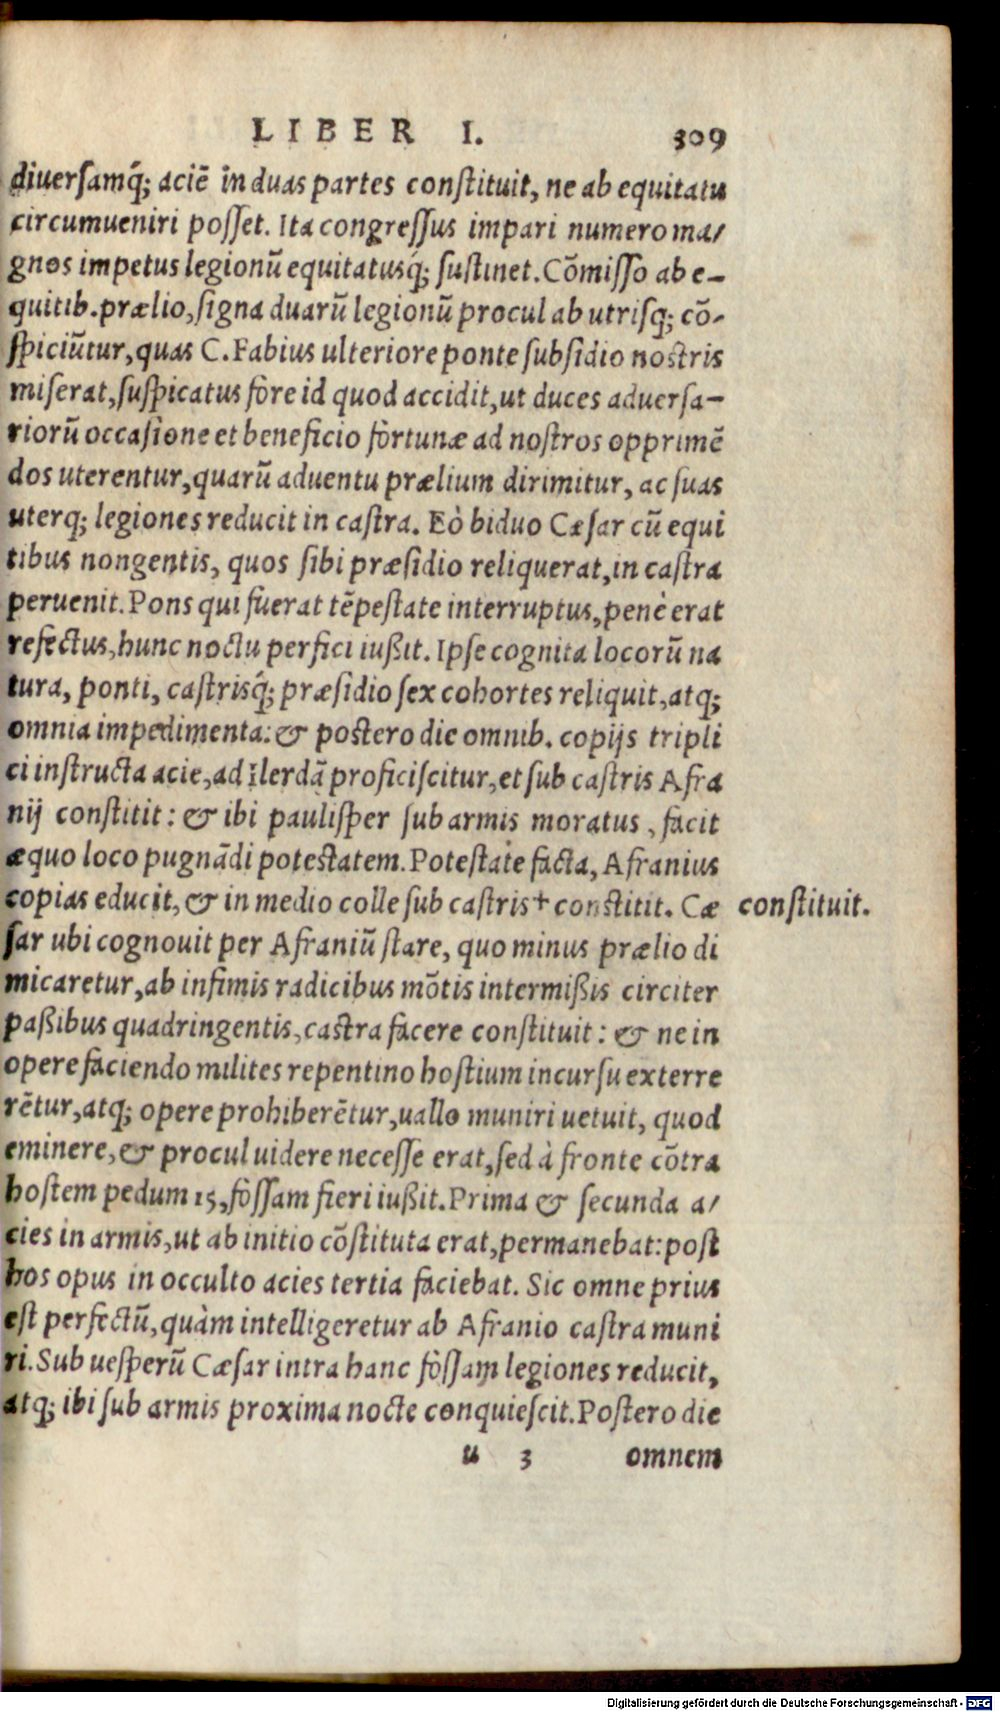 LIBER I. 309
diuersamq́; aciē in duas partes constituit, ne ab equitatu
circumueniri posset. Ita congressus impari numero ma/
gnos impetus legionū equitatusq́; sustinet. Cōmisso ab e-
quitib. prælio, signa duarū legionū procul ab utrisq; cō-
spiciūtur, quas C. Fabius ulteriore ponte subsidio nostris
miserat, suspicatus fore id quod accidit, ut duces aduersa-
riorū occasione et beneficio fortunæ ad nostros opprimē
dos uterentur, quarū aduentu prælium dirimitur, ac suas
uterq; legiones reducit in castra. Eò biduo Cæsar cū equi
tibus nongentis, quos sibi præsidio reliquerat, in castra
peruenit. Pons qui fuerat tēpestate interruptus, penè erat
refectus, hunc noctu perfici iußit. Ipse cognita locorū na
tura, ponti, castrisq́; præsidio sex cohortes reliquit, atq;
omnia impedimenta: & postero die omnib. copijs tripli
ci instructa acie, ad Ilerdā proficiscitur, et sub castris Afra
nij constitit: & ibi paulisper sub armis moratus, facit
æquo loco pugnādi potestatem. Potestate facta, Afranius
copias educit, & in medio colle sub castris+ constitit. Cæ constituit.
sar ubi cognouit per Afraniū stare, quo minus prælio di
micaretur, ab infimis radicibus mōtis intermißis circiter
paßibus quadringentis, castra facere constituit: & ne in
opere faciendo milites repentino hostium incursu exterre
rētur, atq; opere prohiberētur, uallo muniri uetuit, quod
eminere, & procul uidere necesse erat, sed à fronte cōtra
hostem pedum 15, fossam fieri iußit. Prima & secunda a/
cies in armis, ut ab initio cōstituta erat, permanebat: post
hos opus in occulto acies tertia faciebat. Sic omne prius
est perfectū, quàm intelligeretur ab Afranio castra muni
ri. Sub uesperū Cæsar intra hanc fossam legiones reducit,
atq; ibi sub armis proxima nocte conquiescit. Postero die
u 3 omnem
Digitalisierung gefördert durch die Deutsche Forschungsgemeinschaft - DFG